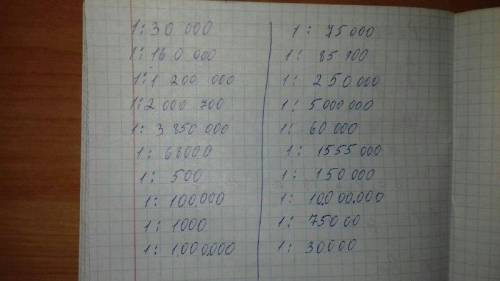 1: 30 000
1: 160 000
1: 1 200 000
1: 2 000 700
1: 3 850 000
1: 68000
1: 500
1: 100.000
1: 1000
1: 1.000.000
1: 25 000
1: 85 900
1: 250 000
1: 5 000 000
1: 60 000
1: 1555 000
1: 150 000
1: 10.000.000
1: 750 00
1: 30000